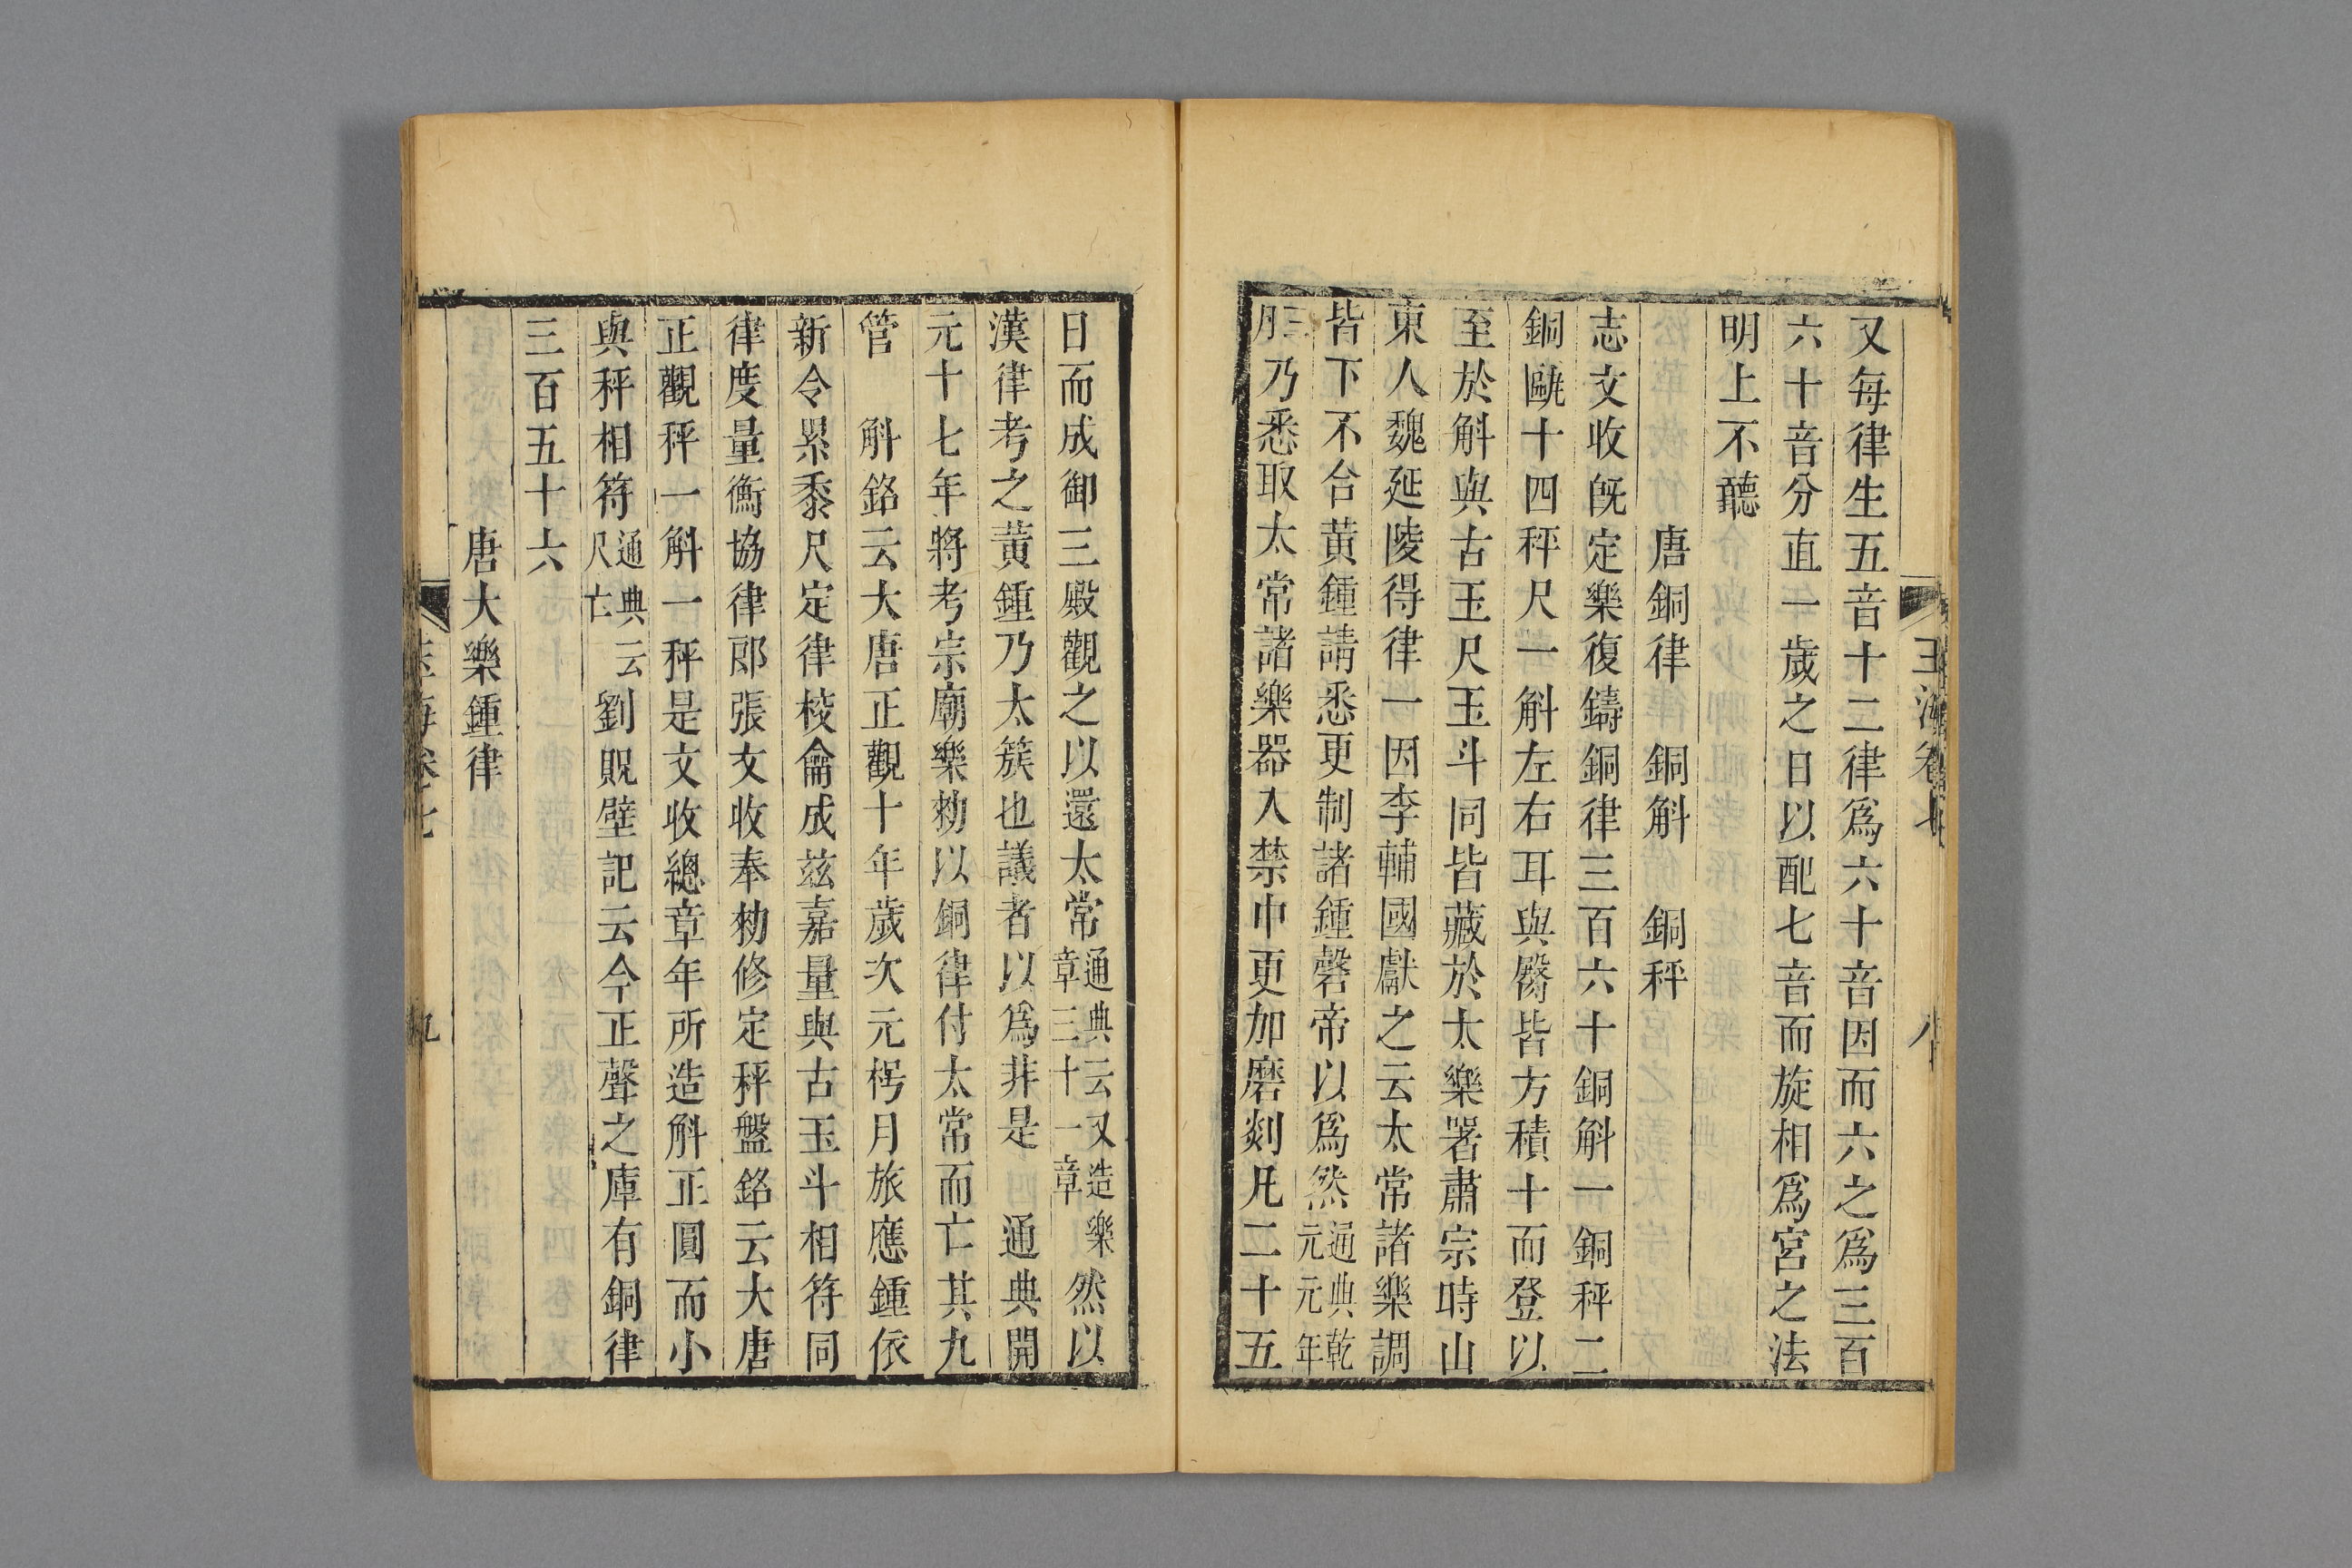 玉海卷七 八
又每律生五音十二律爲六十音因而六之爲三百
六十音分直一歲之日以配七音而旋相爲宮之法
明上不聽
唐銅律 銅斛 銅秤
志文收旣定樂復鑄銅律三百六十銅斛一銅秤二
銅甌十四秤尺一斛左右耳與臋皆方積十而登以
至於斛與古玉尺玉斗同皆藏於太樂署肅宗時山
東人魏延陵得律一因李輔國獻之云太常諸樂調
皆下不合黃鍾請悉更制諸鍾磬帝以爲然通典乾元元年
三月乃悉取太常諸樂器入禁中更加磨剡凡二十五
日而成御三殿觀之以還太常通典云又造樂章三十一章然以
漢律考之黃鍾乃太簇也議者以爲非是 通典開
元十七年將考宗廟樂勑以銅律付太常而亡其九
管 斛銘云大唐正觀十年歲次元枵月旅應鍾依
新令累黍尺定律校龠成茲嘉量與古玉斗相符同
律度量衡協律郎張文收奉勑修定秤盤銘云大唐
正觀秤一斛一秤是文收總章年所造斛正圓而小
與秤相符通典云尺亡劉貺壁記云今正聲之庫有銅律
三百五十六
唐大樂鍾律
玉海卷七 九